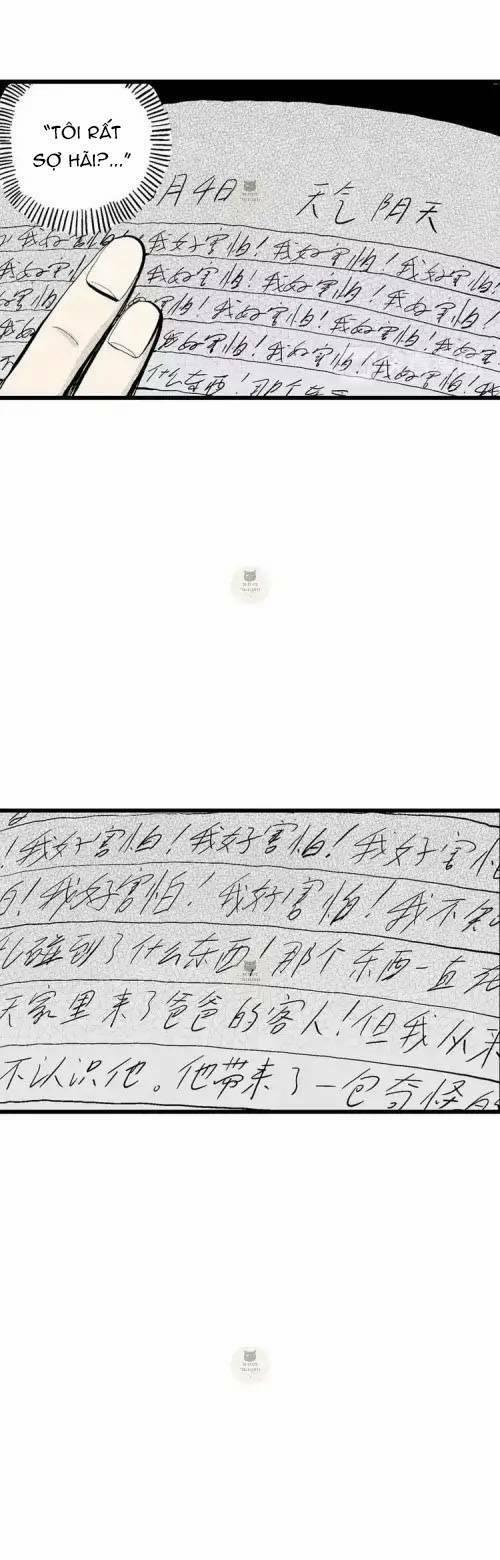 “TÔI RẤT
SỢ HÃI?...”
月4日 天气 阴天
！我好害怕！我好害怕！我好害怕！我好害怕！
我好害怕！我好害怕！我好害怕！我好害怕！
我好害怕！我好害怕！我好害怕！
我好害怕！我好害怕！我好害怕！我好
什么东西！那个东
！我好害怕！我好害怕！我好害
怕！我好害怕！我好害怕！我不知
碰到了什么东西！那个东西一直在
天家里来了爸爸的客人！但我从来
不认识他。他带来了一包奇怪的